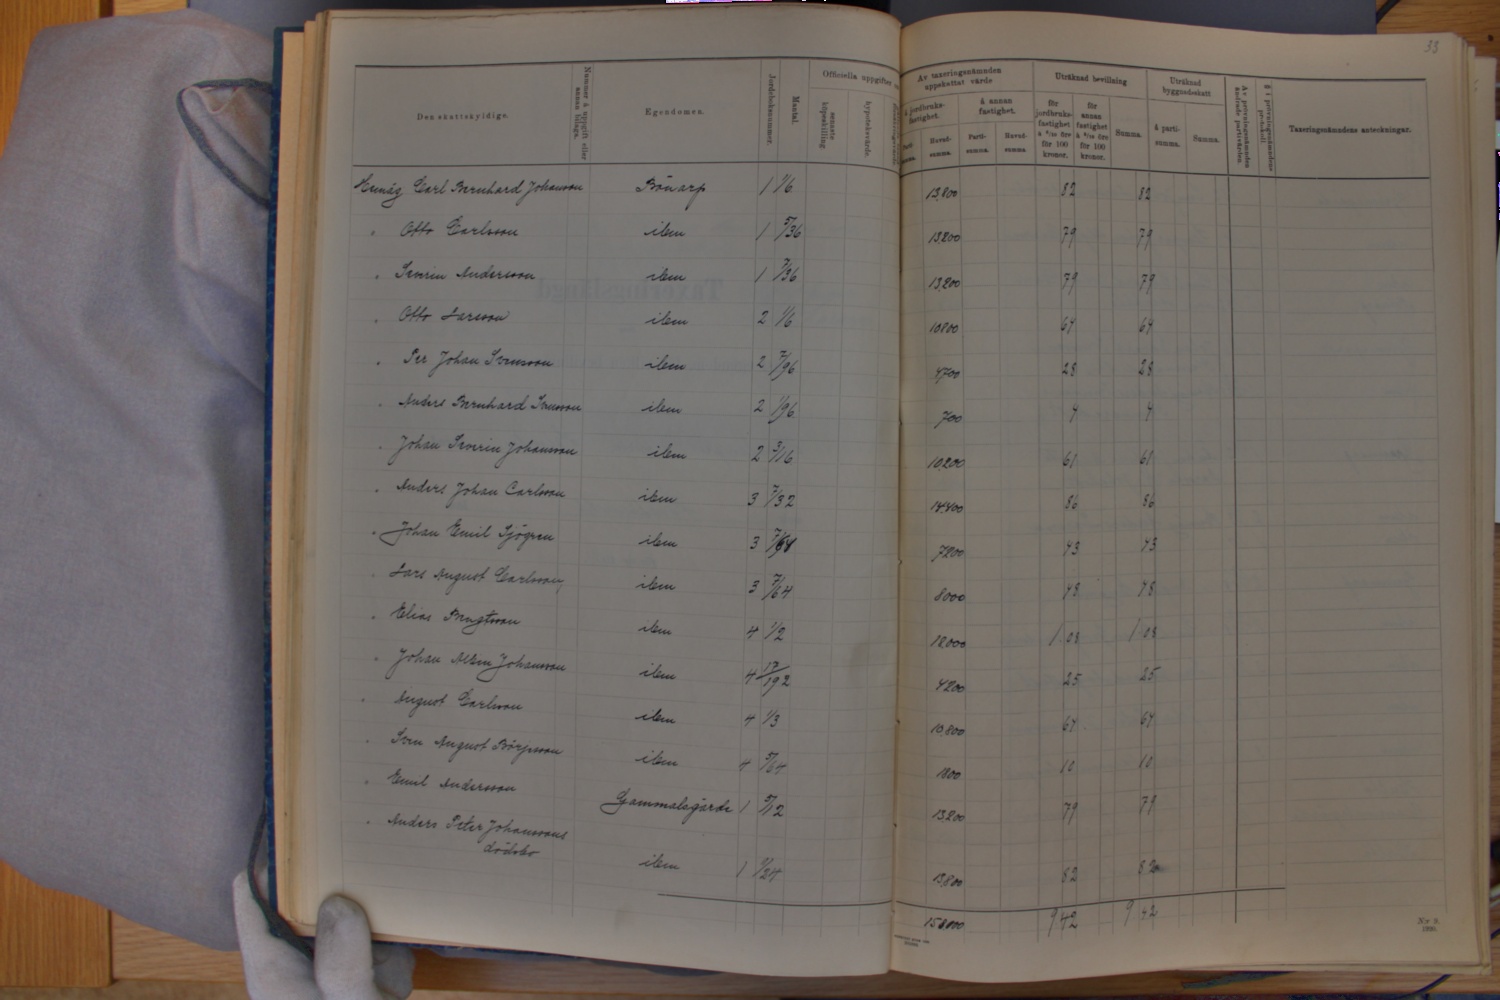 33
Den skattskyldige.
Nummer å uppgift eller annan bilaga.
Egendomen.
Jordeboksnummer.
Mantal.
Officiella uppgifter
senaste köpeskilling.
hypoteksvärde.
Av taxeringsnämnden uppskattat värde
å jordbruksfastighet.
å annan fastighet.
Parti-summa.
Huvud-summa.
Parti-summa.
Huvud-summa.
Uträknad bevillning
för jordbruks-fastighet à 6/10 öre för 100 kronor.
för annan fastighet à 5/10 öre för 100 kronor.
Summa.
Uträknad byggnadsskatt.
Å parti-summa.
Summa.
Av prövningsnämnden ändrade partivärden.
§ i prövningsnämndens protokoll.
Taxeringsnämndens anteckningar.
Carl Bernhard Johansson Bönarp 1 1/6 13,800 82 82
" Otto Carlsson idem 1 5/36 13,200 79 79
" Severin Andersson idem 1 7/36 13,200 79 79
" Otto Larsson idem 2 1/6 10800 64 64
" Per Johan Svensson idem 2 7/96 4700 28 28
" Anders Bernhard Svensson idem 2 1/96 700 4 4
" Johan Severin Johansson idem 2 3/16 10,200 61 61
" Anders Johan Carlsson idem 3 7/32 14,400 86 86
" Johan Emil Sjögren idem 3 7/64 7200 43 43
" Lars August Carlsson idem 3 7/64 8000 48 48
" Elias Bengtsson idem 4 1/2 18,000 1 08 1 08
" Johan Albin Johansson idem 4 17/192 4200 25 25
" August Carlsson idem 4 1/3 10,800 64 64
" Sven August Börjesson idem 4 5/64 1800 10 10
" Emil Andersson Gammalsgärde 1 5/12 13,200 79 79
" Anders Peter Johanssons
dödsbo idem 1 9/24 13,800 82 82
158000 9 42 9 42
Nr 9.